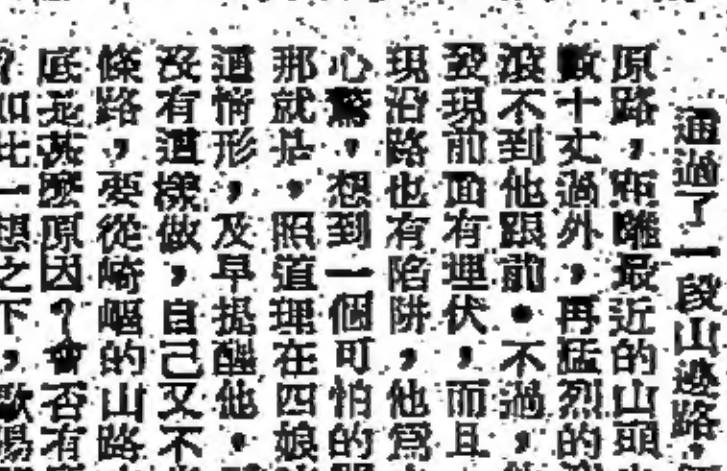 通過了一段山邊路，
原路，距離最近的山頭
數十丈過外，再猛烈的
滾不到他跟前。不過，
發現前面有埋伏，而且
現沿路也有陷阱，他爲
心驚，想到一個可怕的
那就是，照道理在四娘
這情形，及早提醒他，
沒有這樣做，自己又不
條路，要從崎嶇的山路
底是甚麼原因？會否有
？如此一想之下，歐陽